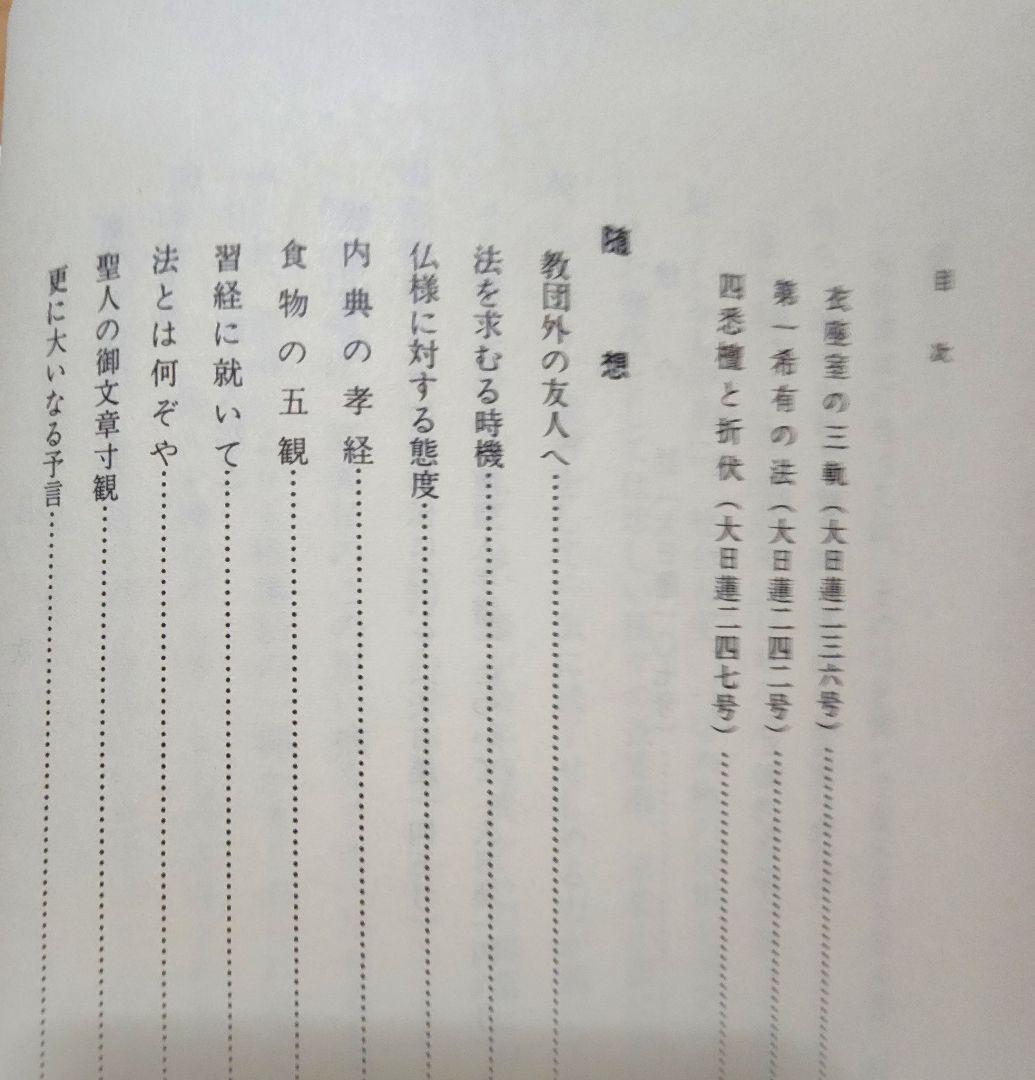 目次
衣座室の三軌（大日蓮二三六号）…………
第一希有の法（大日蓮二四二号）…………
四悉檀と折伏（大日蓮二四七号）…………
随想
教団外の友人へ…………
法を求むる時機…………
仏様に対する態度…………
内典の孝経…………
食物の五観…………
習経に就いて…………
法とは何ぞや…………
聖人の御文章寸観…………
更に大いなる予言…………